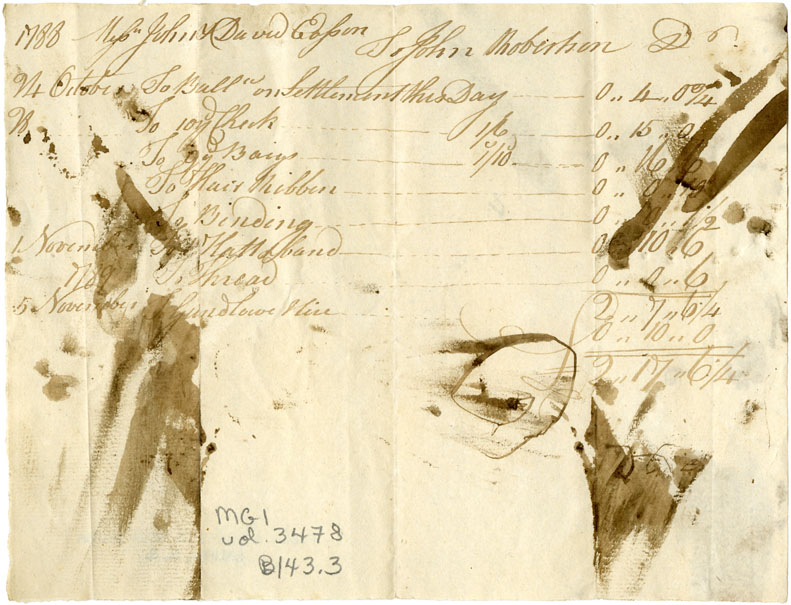 1788 Messrs John & David Easson To John Robertson Dr.
24 October To Ballce on Settlement this Day 0 ,, 4 ,, 0 3/4
28 To 10yd Check 1/6 0 ,, 15 ,, 0
To 9yd Bays 1/10 0 ,, 16 ,, 6
To Hair Ribben 0 ,, 0 ,,
To Binding 0 ,, 0 ,, 1/2
1 November To Hatt & band 0 ,, 10 ,, 6
1789 To Thread 0 ,, 0 ,, 6
5 November Hire
2 ,, 7 ,, 6 1/4
0 ,, 10 ,, 0
2 ,, 17 ,, 6 1/4
MG1
vol. 3478
B143.3